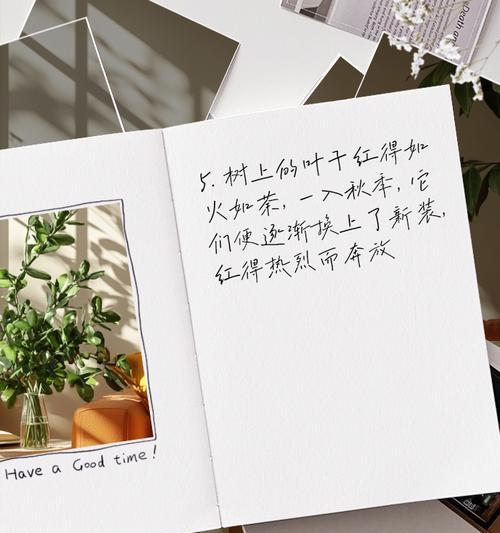 Death an
5. 树上的叶子红得如
火如荼,一入秋季,它
们便逐渐换上了新装,
红得热烈而奔放
Have a Good time!